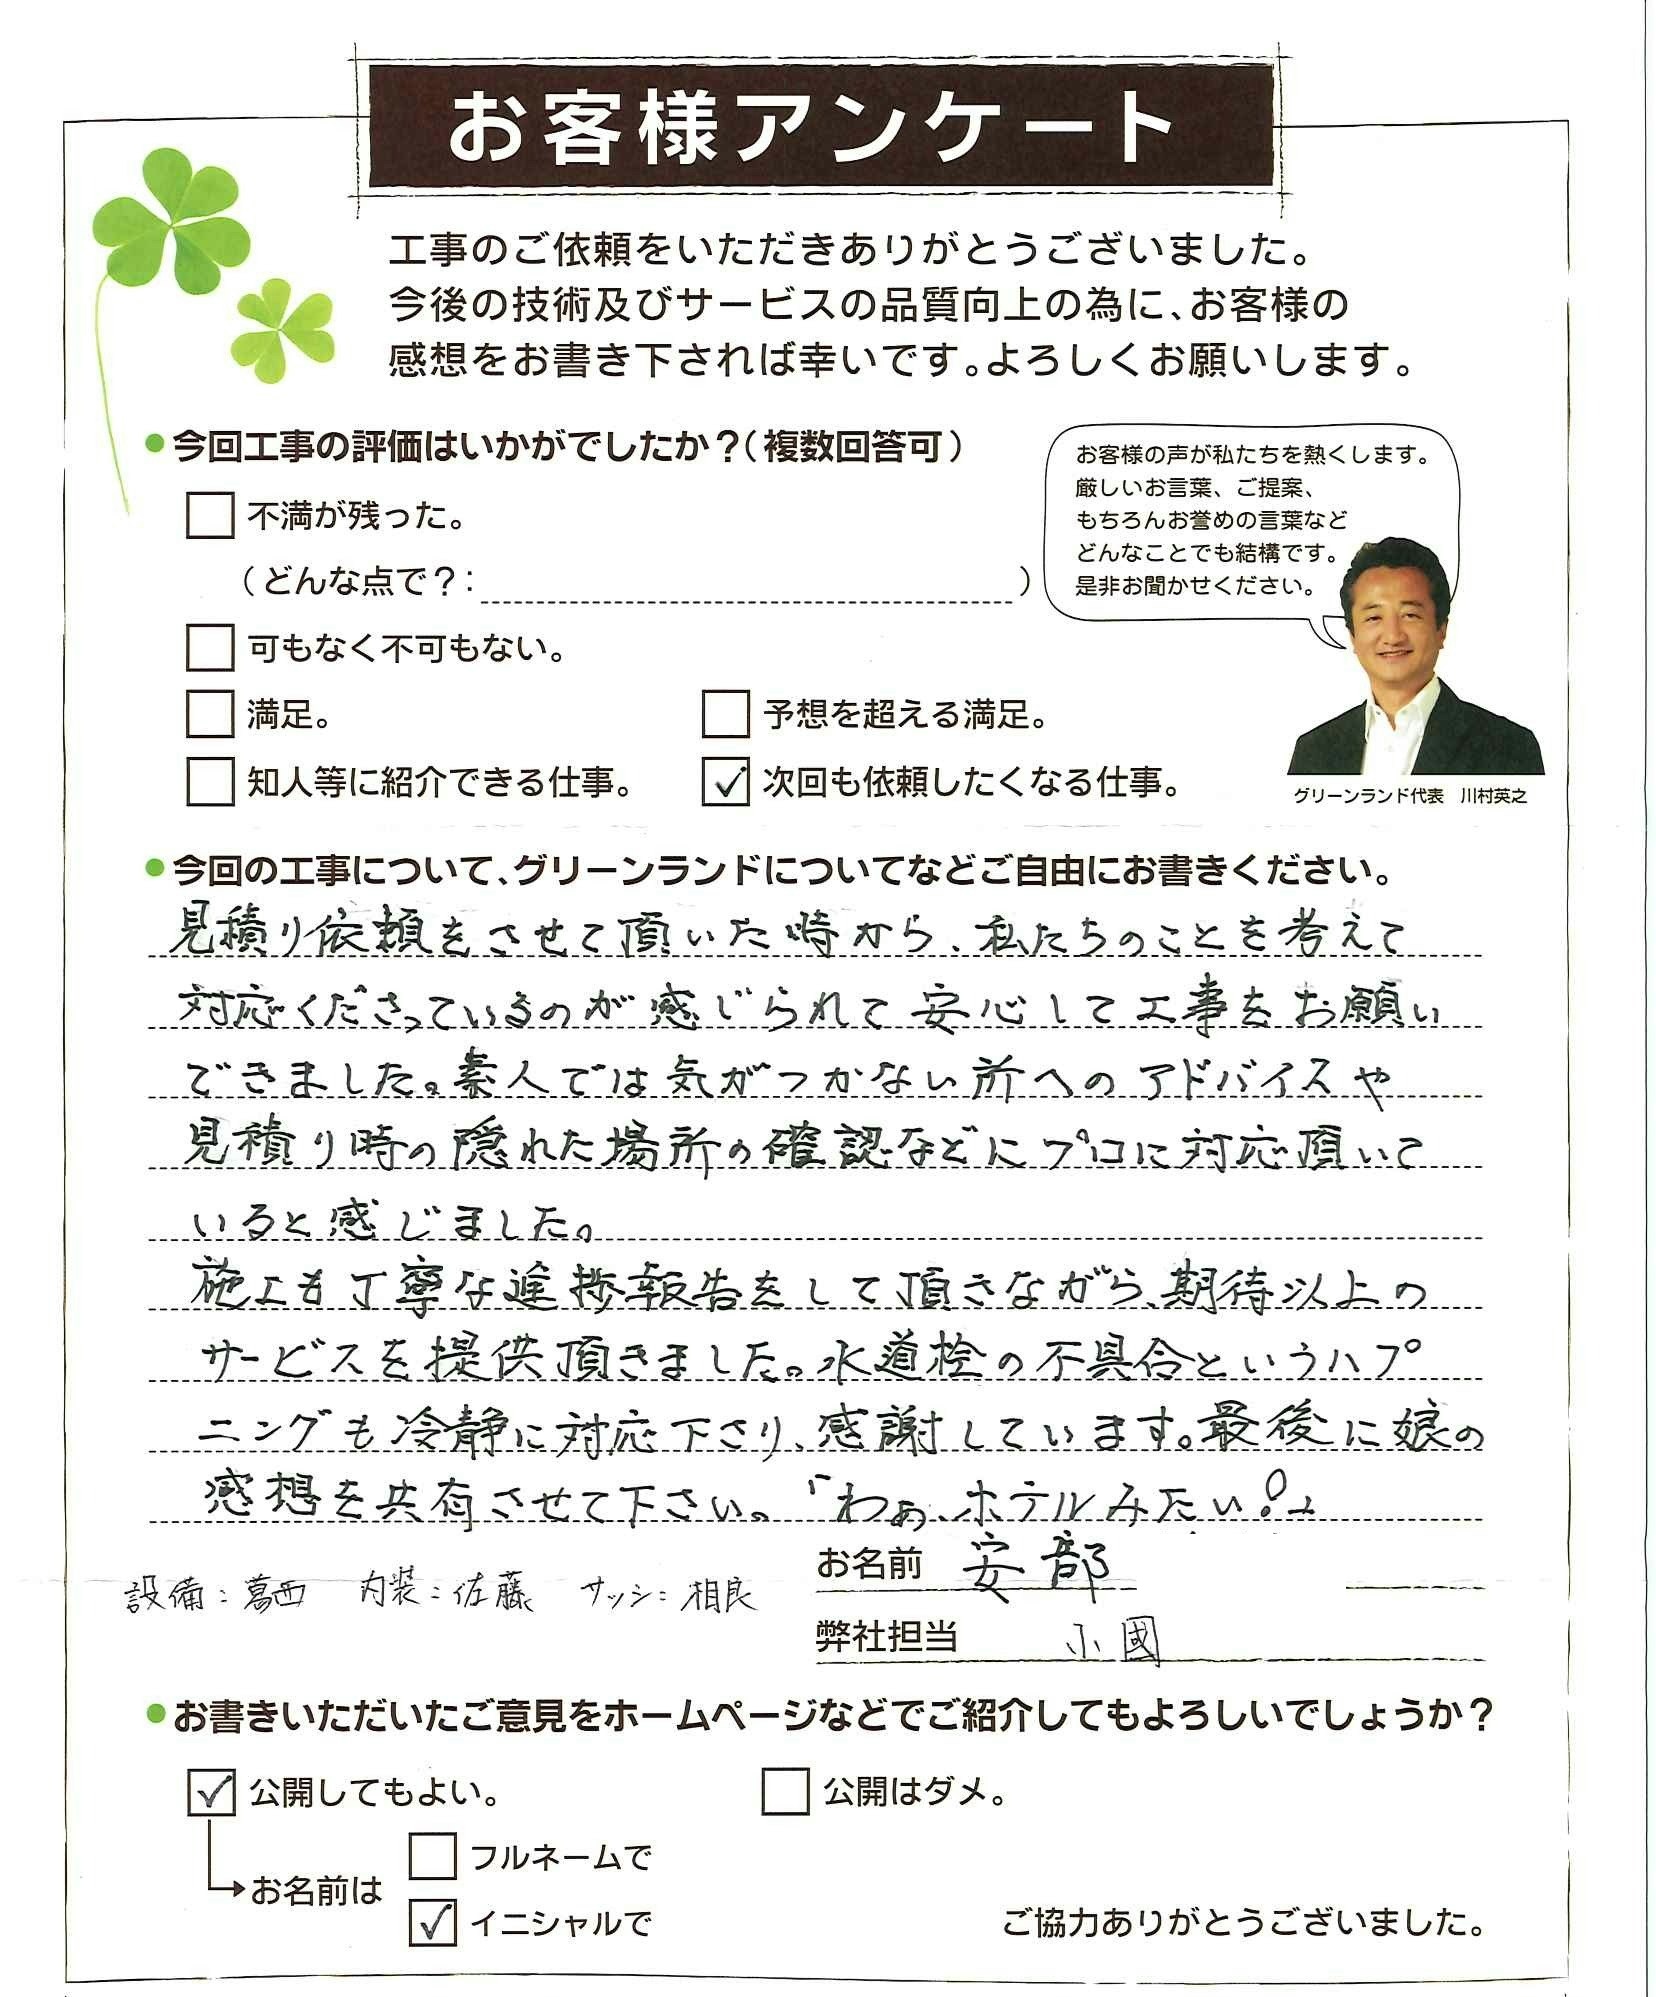 お客様アンケート
工事のご依頼をいただきありがとうございました。
今後の技術及びサービスの品質向上の為に、お客様の
感想をお書き下されば幸いです。よろしくお願いします。
●今回工事の評価はいかがでしたか?(複数回答可)
不満が残った。
(どんな点で?: )
可もなく不可もない。
満足。 予想を超える満足。
知人等に紹介できる仕事。 ✓ 次回も依頼したくなる仕事。
お客様の声が私たちを熱くします。
厳しいお言葉、ご提案、
もちろんお誉めの言葉など
どんなことでも結構です。
是非お聞かせください。
グリーンランド代表 川村英之
●今回の工事について、グリーンランドについてなどご自由にお書きください。
見積り依頼をさせて頂いた時から、私たちのことを考えて
対応くださっているのが感じられて安心して工事をお願い
できました。素人では気がつかない所へのアドバイスや
見積り時の隠れた場所の確認などにプロに対応頂いて
いると感じました。
施工も丁寧な進捗報告をして頂きながら、期待以上の
サービスを提供頂きました。水道栓の不具合というハプ
ニングも冷静に対応下さり、感謝しています。最後に娘の
感想を共有させて下さい。「わぁ、ホテルみたい!」
お名前 安部
設備:葛西 内装:佐藤 サッシ:相良
弊社担当 小國
●お書きいただいたご意見をホームページなどでご紹介してもよろしいでしょうか?
✓ 公開してもよい。 公開はダメ。
お名前は
フルネームで
✓ イニシャルで
ご協力ありがとうございました。